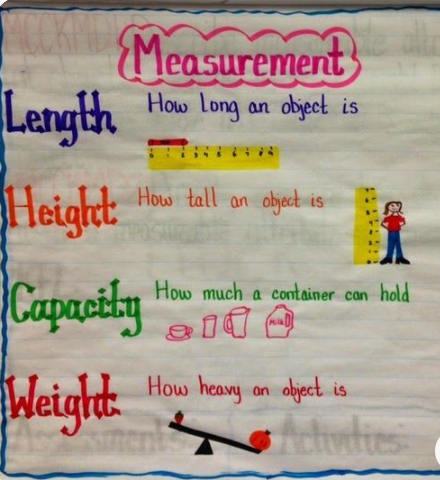 Measurement
Length How long an object is
Height How tall an object is
Capacity How much a container can hold
Milk
Weight How heavy an object is
Assessments Activities: